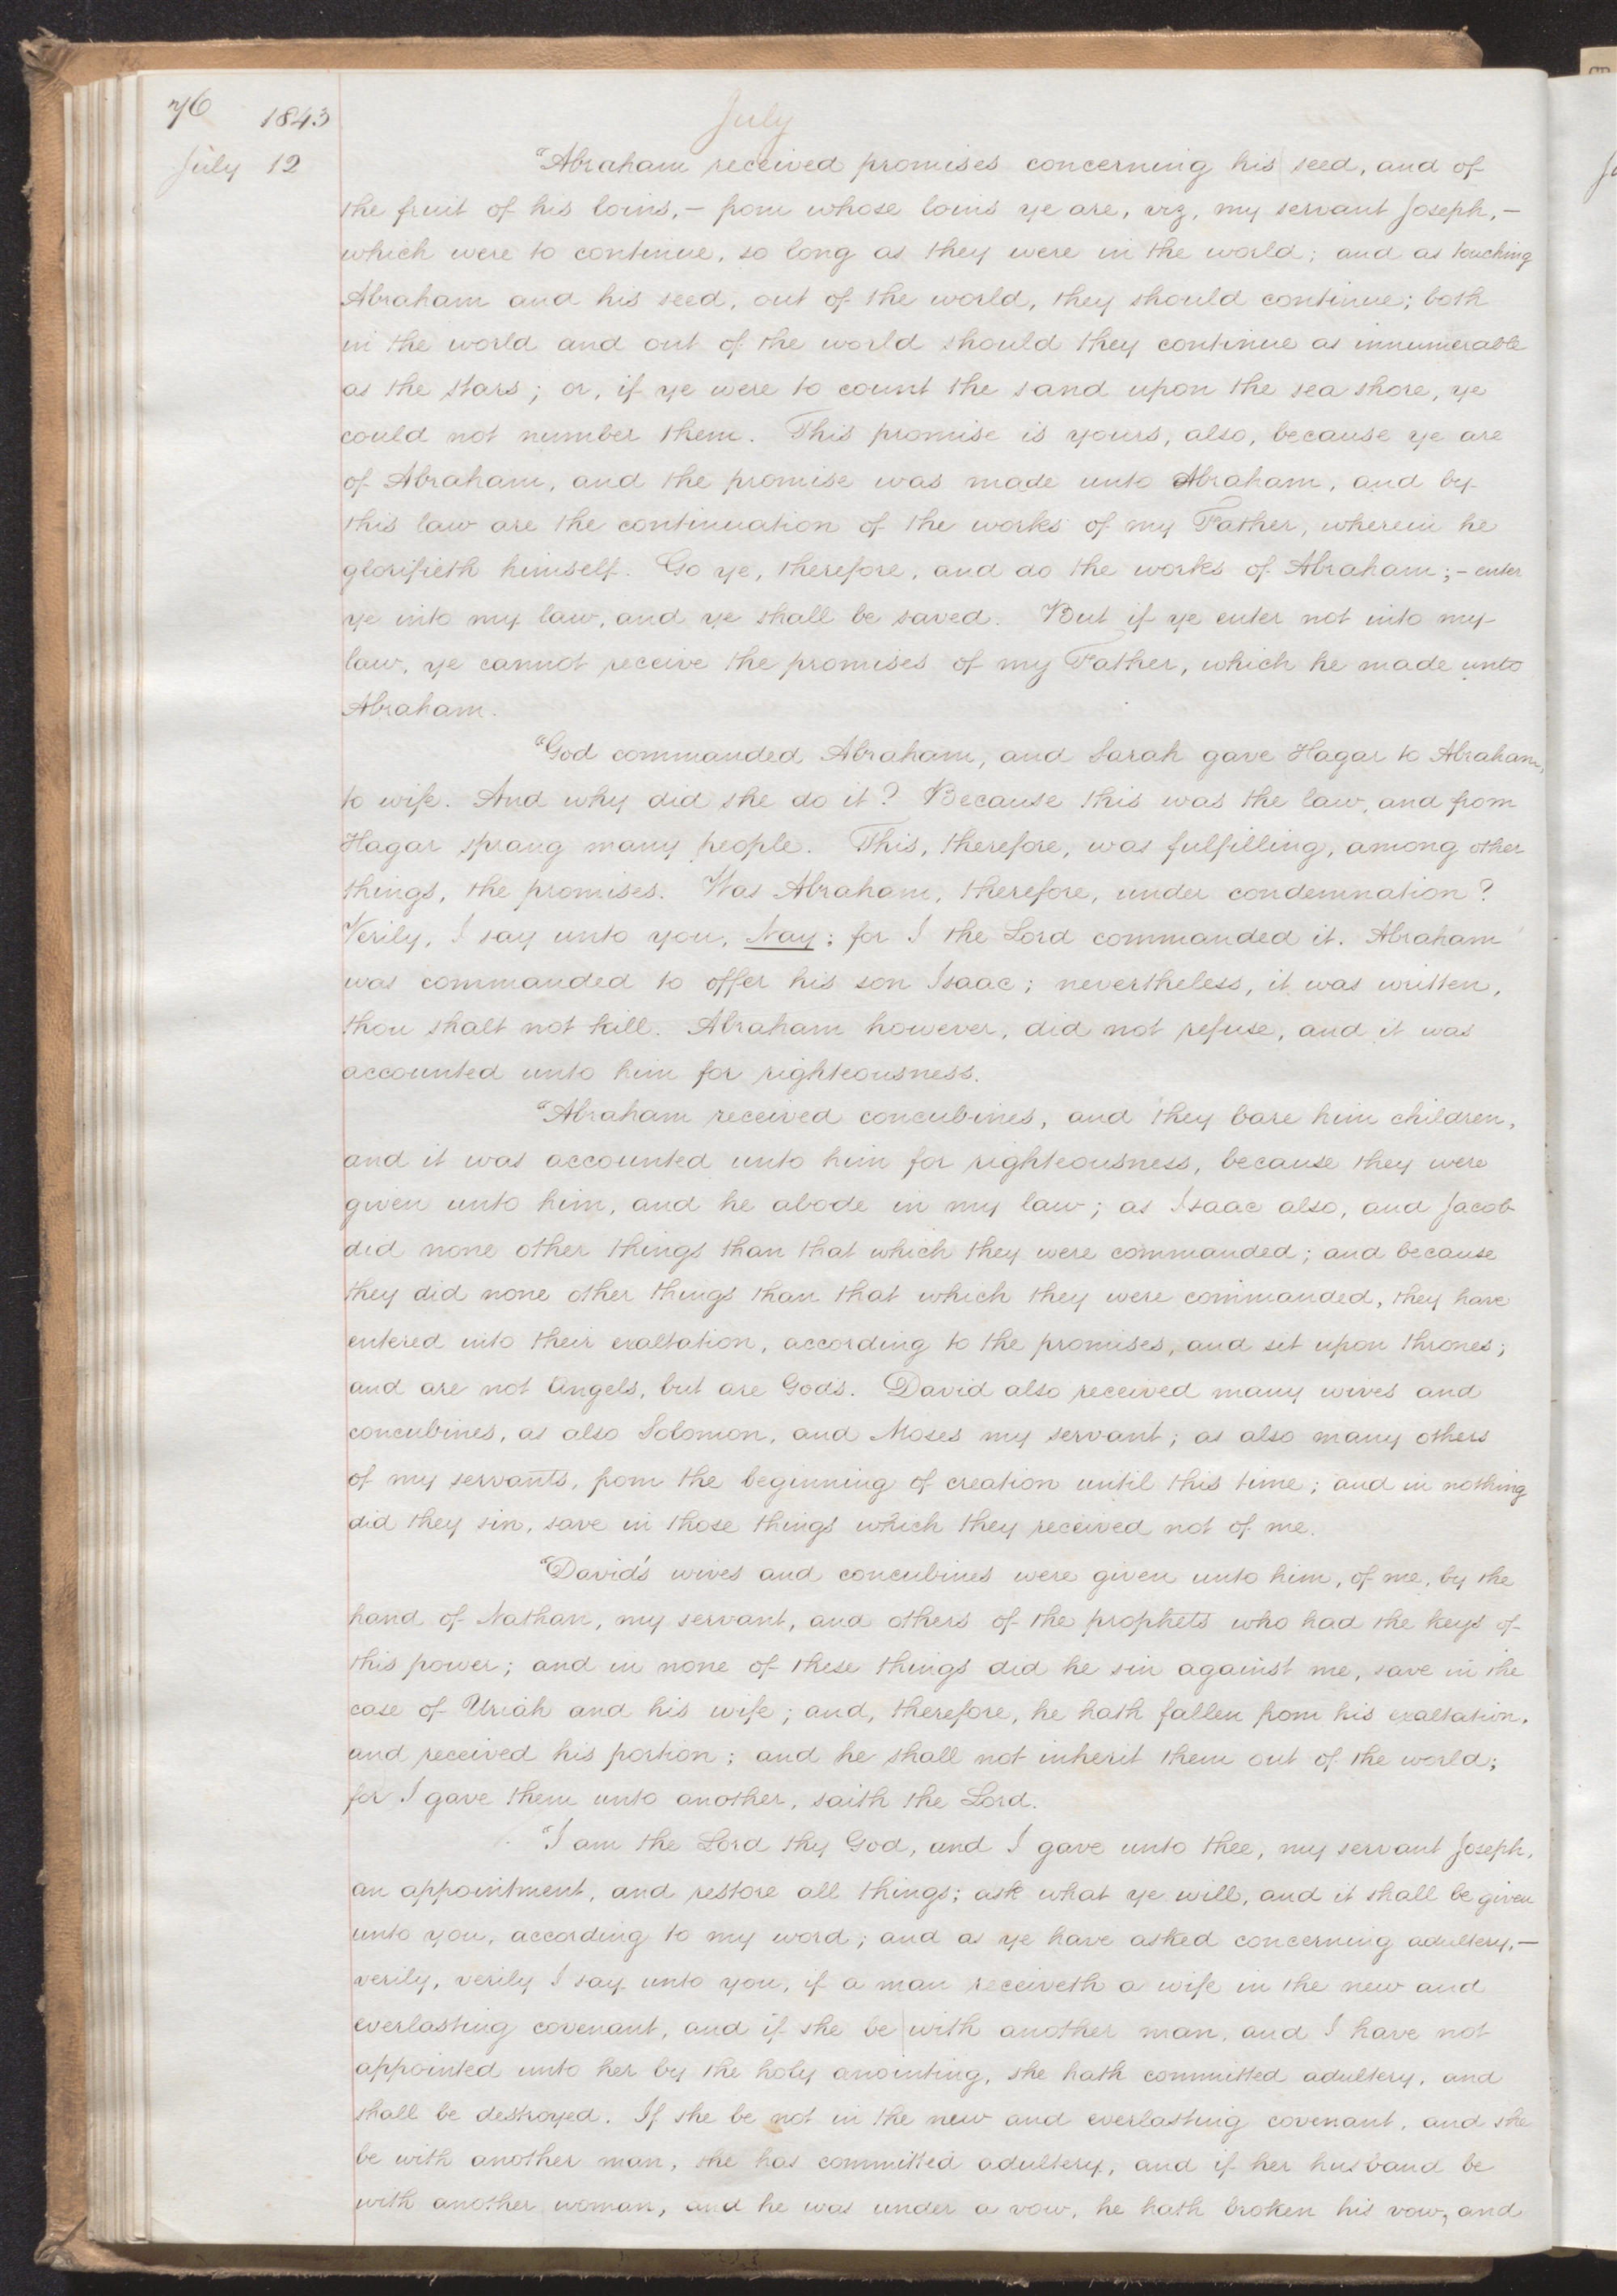 76 1843
July
July 12
"Abraham received promises concerning his seed, and of
the fruit of his loins,— from whose loins ye are, viz, my servant Joseph,—
which were to continue, so long as they were in the world; and as touching
Abraham and his seed, out of the world, they should continue; both
in the world and out of the world should they continue as innumerable
as the stars; or, if ye were to count the sand upon the sea shore, ye
could not number them. This promise is yours, also, because ye are
of Abraham, and the promise was made unto Abraham, and by
this law are the continuation of the works of my Father, wherein he
glorifieth himself. Go ye, therefore, and do the works of Abraham;— enter
ye into my law, and ye shall be saved. But if ye enter not into my
law, ye cannot receive the promises of my Father, which he made unto
Abraham.
"God commanded Abraham, and Sarah gave Hagar to Abraham,
to wife. And why did she do it? Because this was the law, and from
Hagar sprang many people. This, therefore, was fulfilling, among other
things, the promises. Was Abraham, therefore, under condemnation?
Verily, I say unto you, Nay; for I the Lord commanded it. Abraham
was commanded to offer his son Isaac; nevertheless, it was written,
thou shalt not kill. Abraham however, did not refuse, and it was
accounted unto him for righteousness.
"Abraham received concubines, and they bare him children,
and it was accounted unto him for righteousness, because they were
given unto him, and he abode in my law; as Isaac also, and Jacob
did none other things than that which they were commanded; and because
they did none other things than that which they were commanded, they have
entered into their exaltation, according to the promises, and sit upon thrones;
and are not Angels, but are Gods. David also received many wives and
concubines, as also Solomon, and Moses my servant; as also many others
of my servants, from the beginning of creation until this time; and in nothing
did they sin, save in those things which they received not of me.
"David's wives and concubines were given unto him, of me, by the
hand of Nathan, my servant, and others of the prophets who had the keys of
this power; and in none of these things did he sin against me, save in the
case of Uriah and his wife; and, therefore, he hath fallen from his exaltation,
and received his portion; and he shall not inherit them out of the world;
for I gave them unto another, saith the Lord.
"I am the Lord thy God, and I gave unto thee, my servant Joseph,
an appointment, and restore all things; ask what ye will, and it shall be given
unto you, according to my word; and as ye have asked concerning adultery,—
verily, verily I say unto you, if a man receiveth a wife in the new and
everlasting covenant, and if she be with another man, and I have not
appointed unto her by the holy anointing, she hath committed adultery, and
shall be destroyed. If she be not in the new and everlasting covenant, and she
be with another man, she has committed adultery, and if her husband be
with another woman, and he was under a vow, he hath broken his vow, and